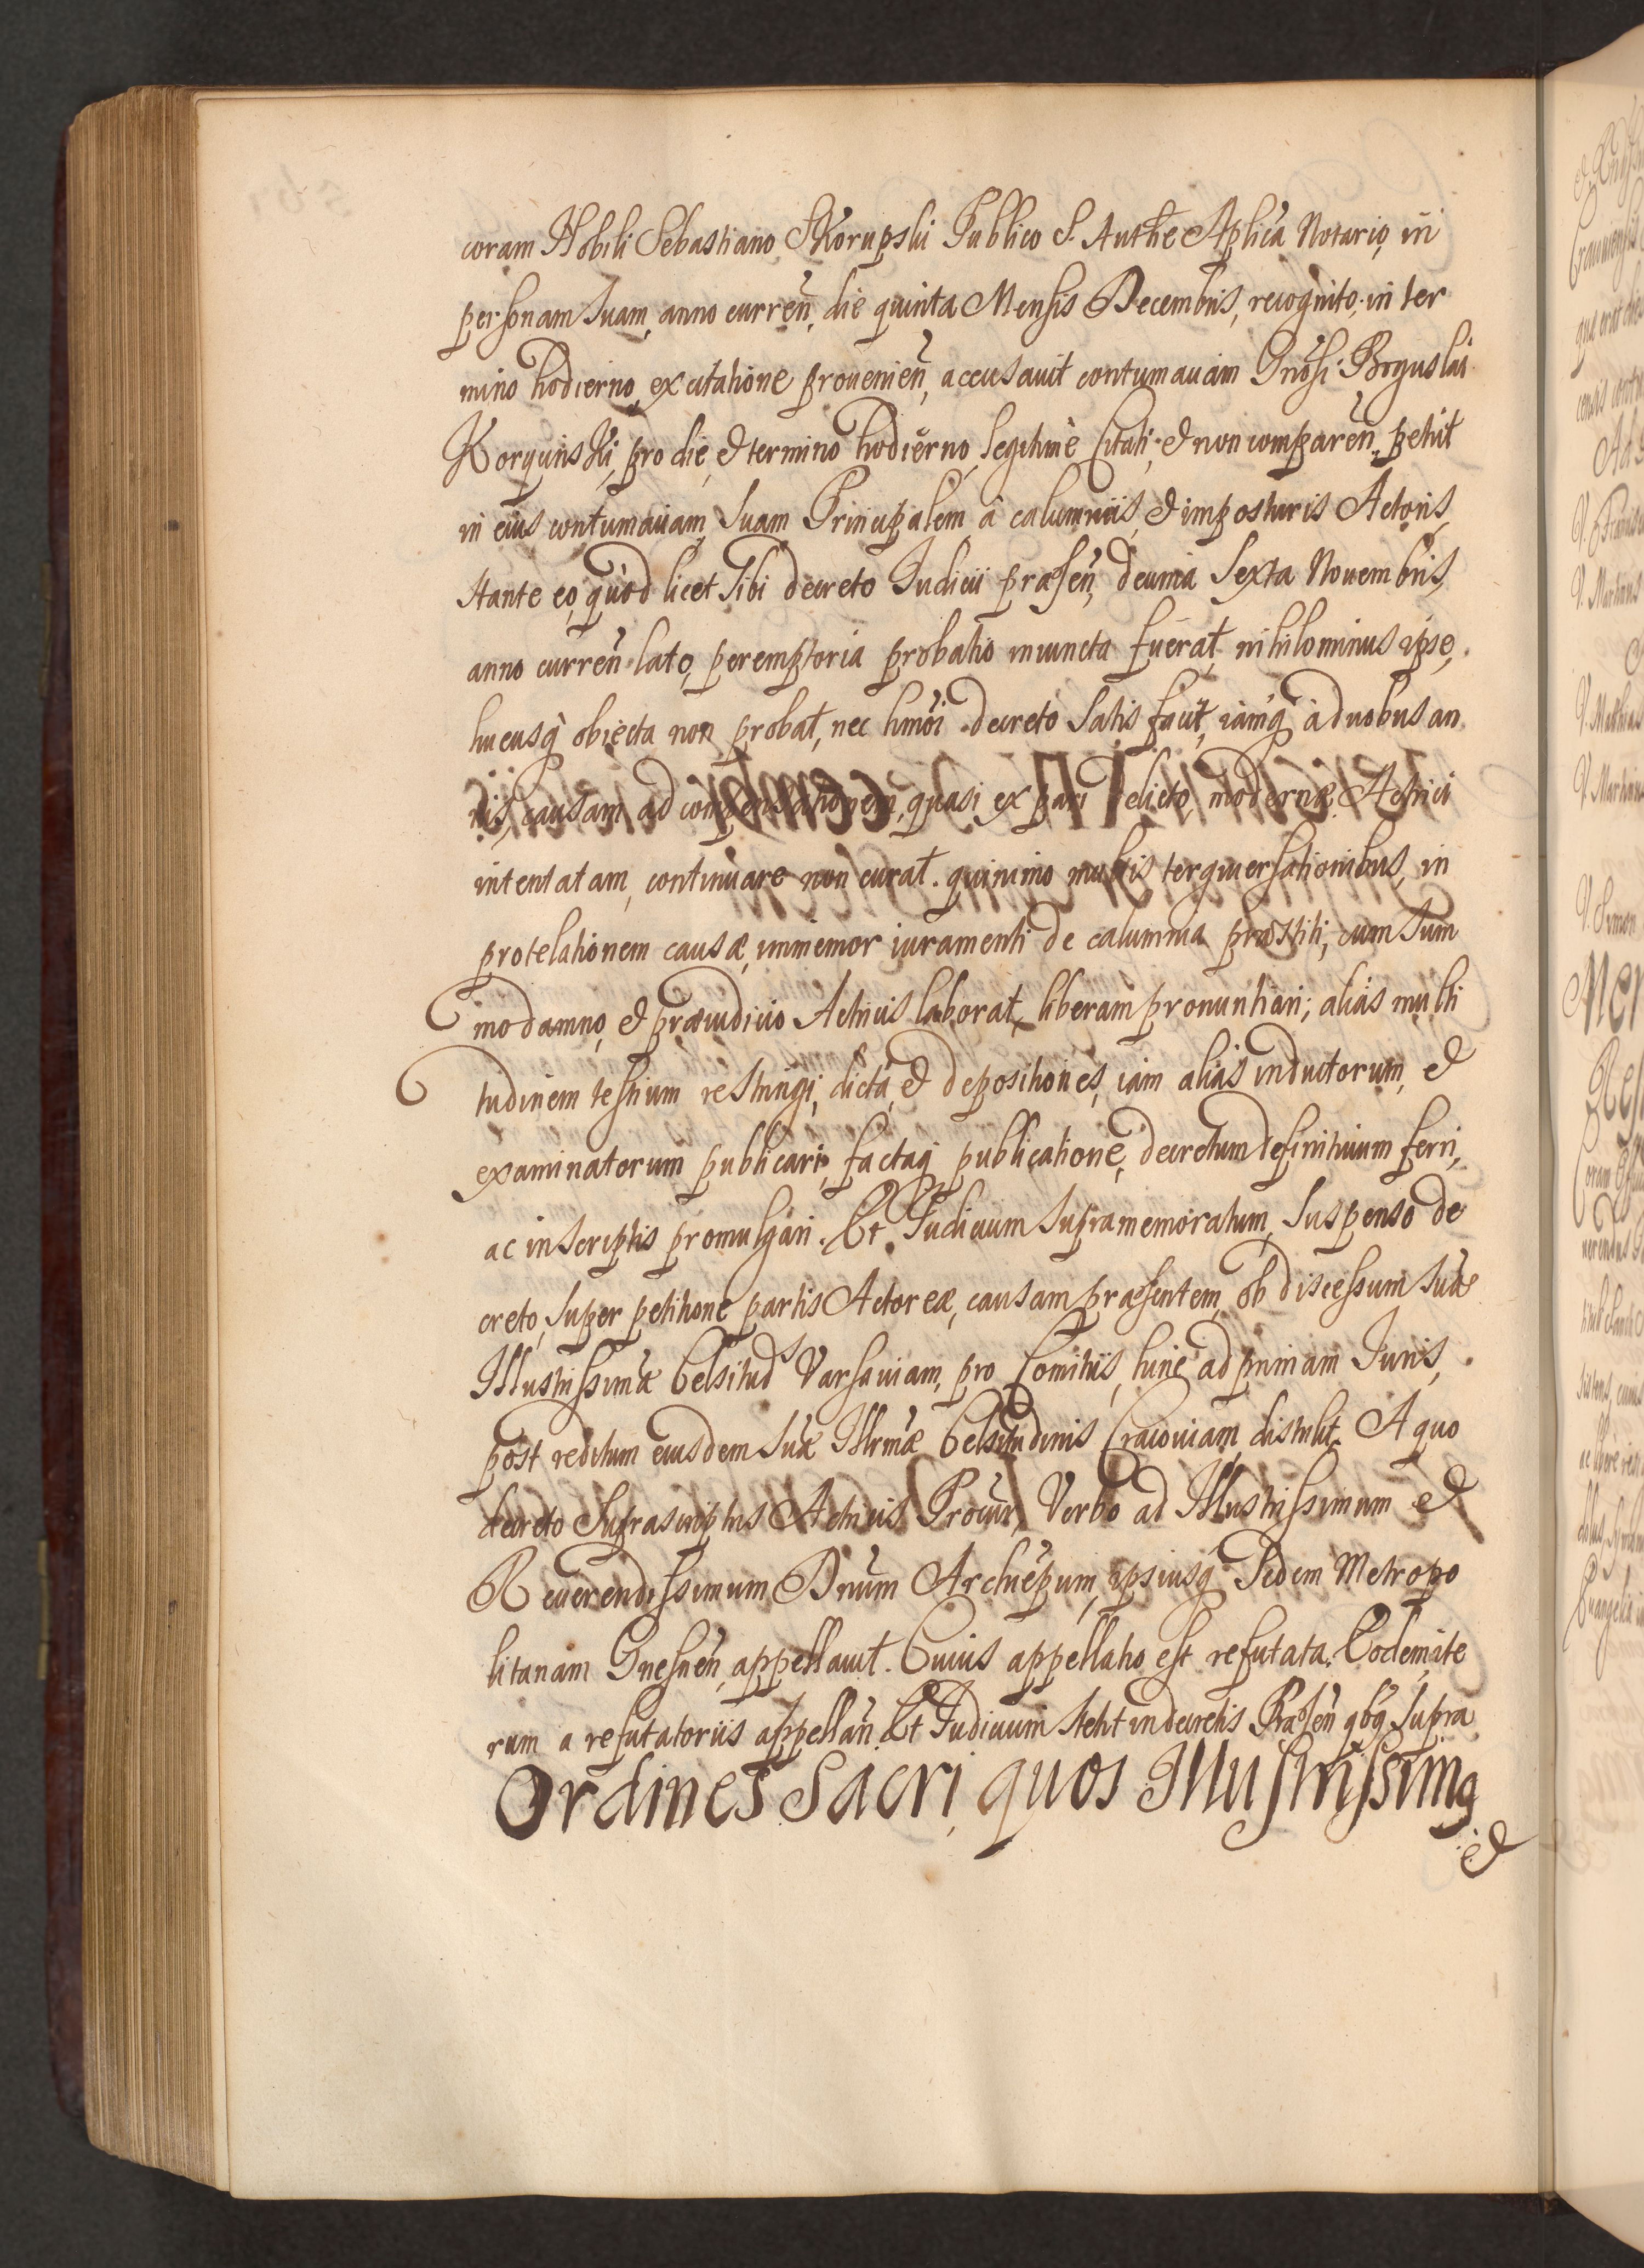 coram Nobili Sebastiano SKorupski Publico S. Autħe Aplicã Notario, in
personam suam, anno curreñ, die quinta Mensis Decembris, recognito. in ter
mino hodierno, ex citatione proueñien, accusauit contumaciam Gnosi: Boguslai
KorycinsKi, pro die, et termino hodierno, legitimè Citati, et non compareñ. petiit
in eius contumaciam, suam Principalem à calumniis, et imposturis Actoris,
stante eo, quòd licet sibi decreto Iudicii præseñ, decima sexta Nouembris,
anno curreñ lato, peremptoria probatio iniuncta fuerat, nihilominus ipse,
hucusq̀ obiecta non probat, nec hmõi decreto satis facit, iamq̀ à duobus an
nis, causam ad compensationem, quasi ex pari delicto, modernæ Actrici
intentatam, continuare non curat. quinimo multis tergiuersationibus, in
protelationem causæ, immemor iuramenti de calumnia præstiti, cum sum
mo damno, et præiudicio Actricis laborat, liberam pronuntiari; aliàs multi
tudinem testium restringi, dicta, et depositiones, iam aliàs inductorum, et
examinatorum publicari, factaq̀ publicatione, decretum definitiuum ferri,
ac in scriptis promulgari. Et Iudicium supramemoratum, suspenso de
creto, super petitione partis Actoreæ, causam præsentem, ob discessum suæ
Illustrissimæ Celsitud Varsauiam, pro Comitiis, hinc ad primam Iuris,
post reditum eiusdem suæ Illrmæ Celsitudinis Cracouiam distulit. A quo
decreto suprascriptus Actricis Procur, Verbo ad Illustrissimum et
Reuerendissimum Dnum Archiepum, ipsiusq̀ Sedem Metropo
litanam Gnesneñ, appellauit. Cuius appellatio est refutata. Eodem ite
rum a refutatoriis appellañ. Et Iudicium stetit in decretis Præseñ qbq supra
Ordines Sacri, quos Illustrissimq
et